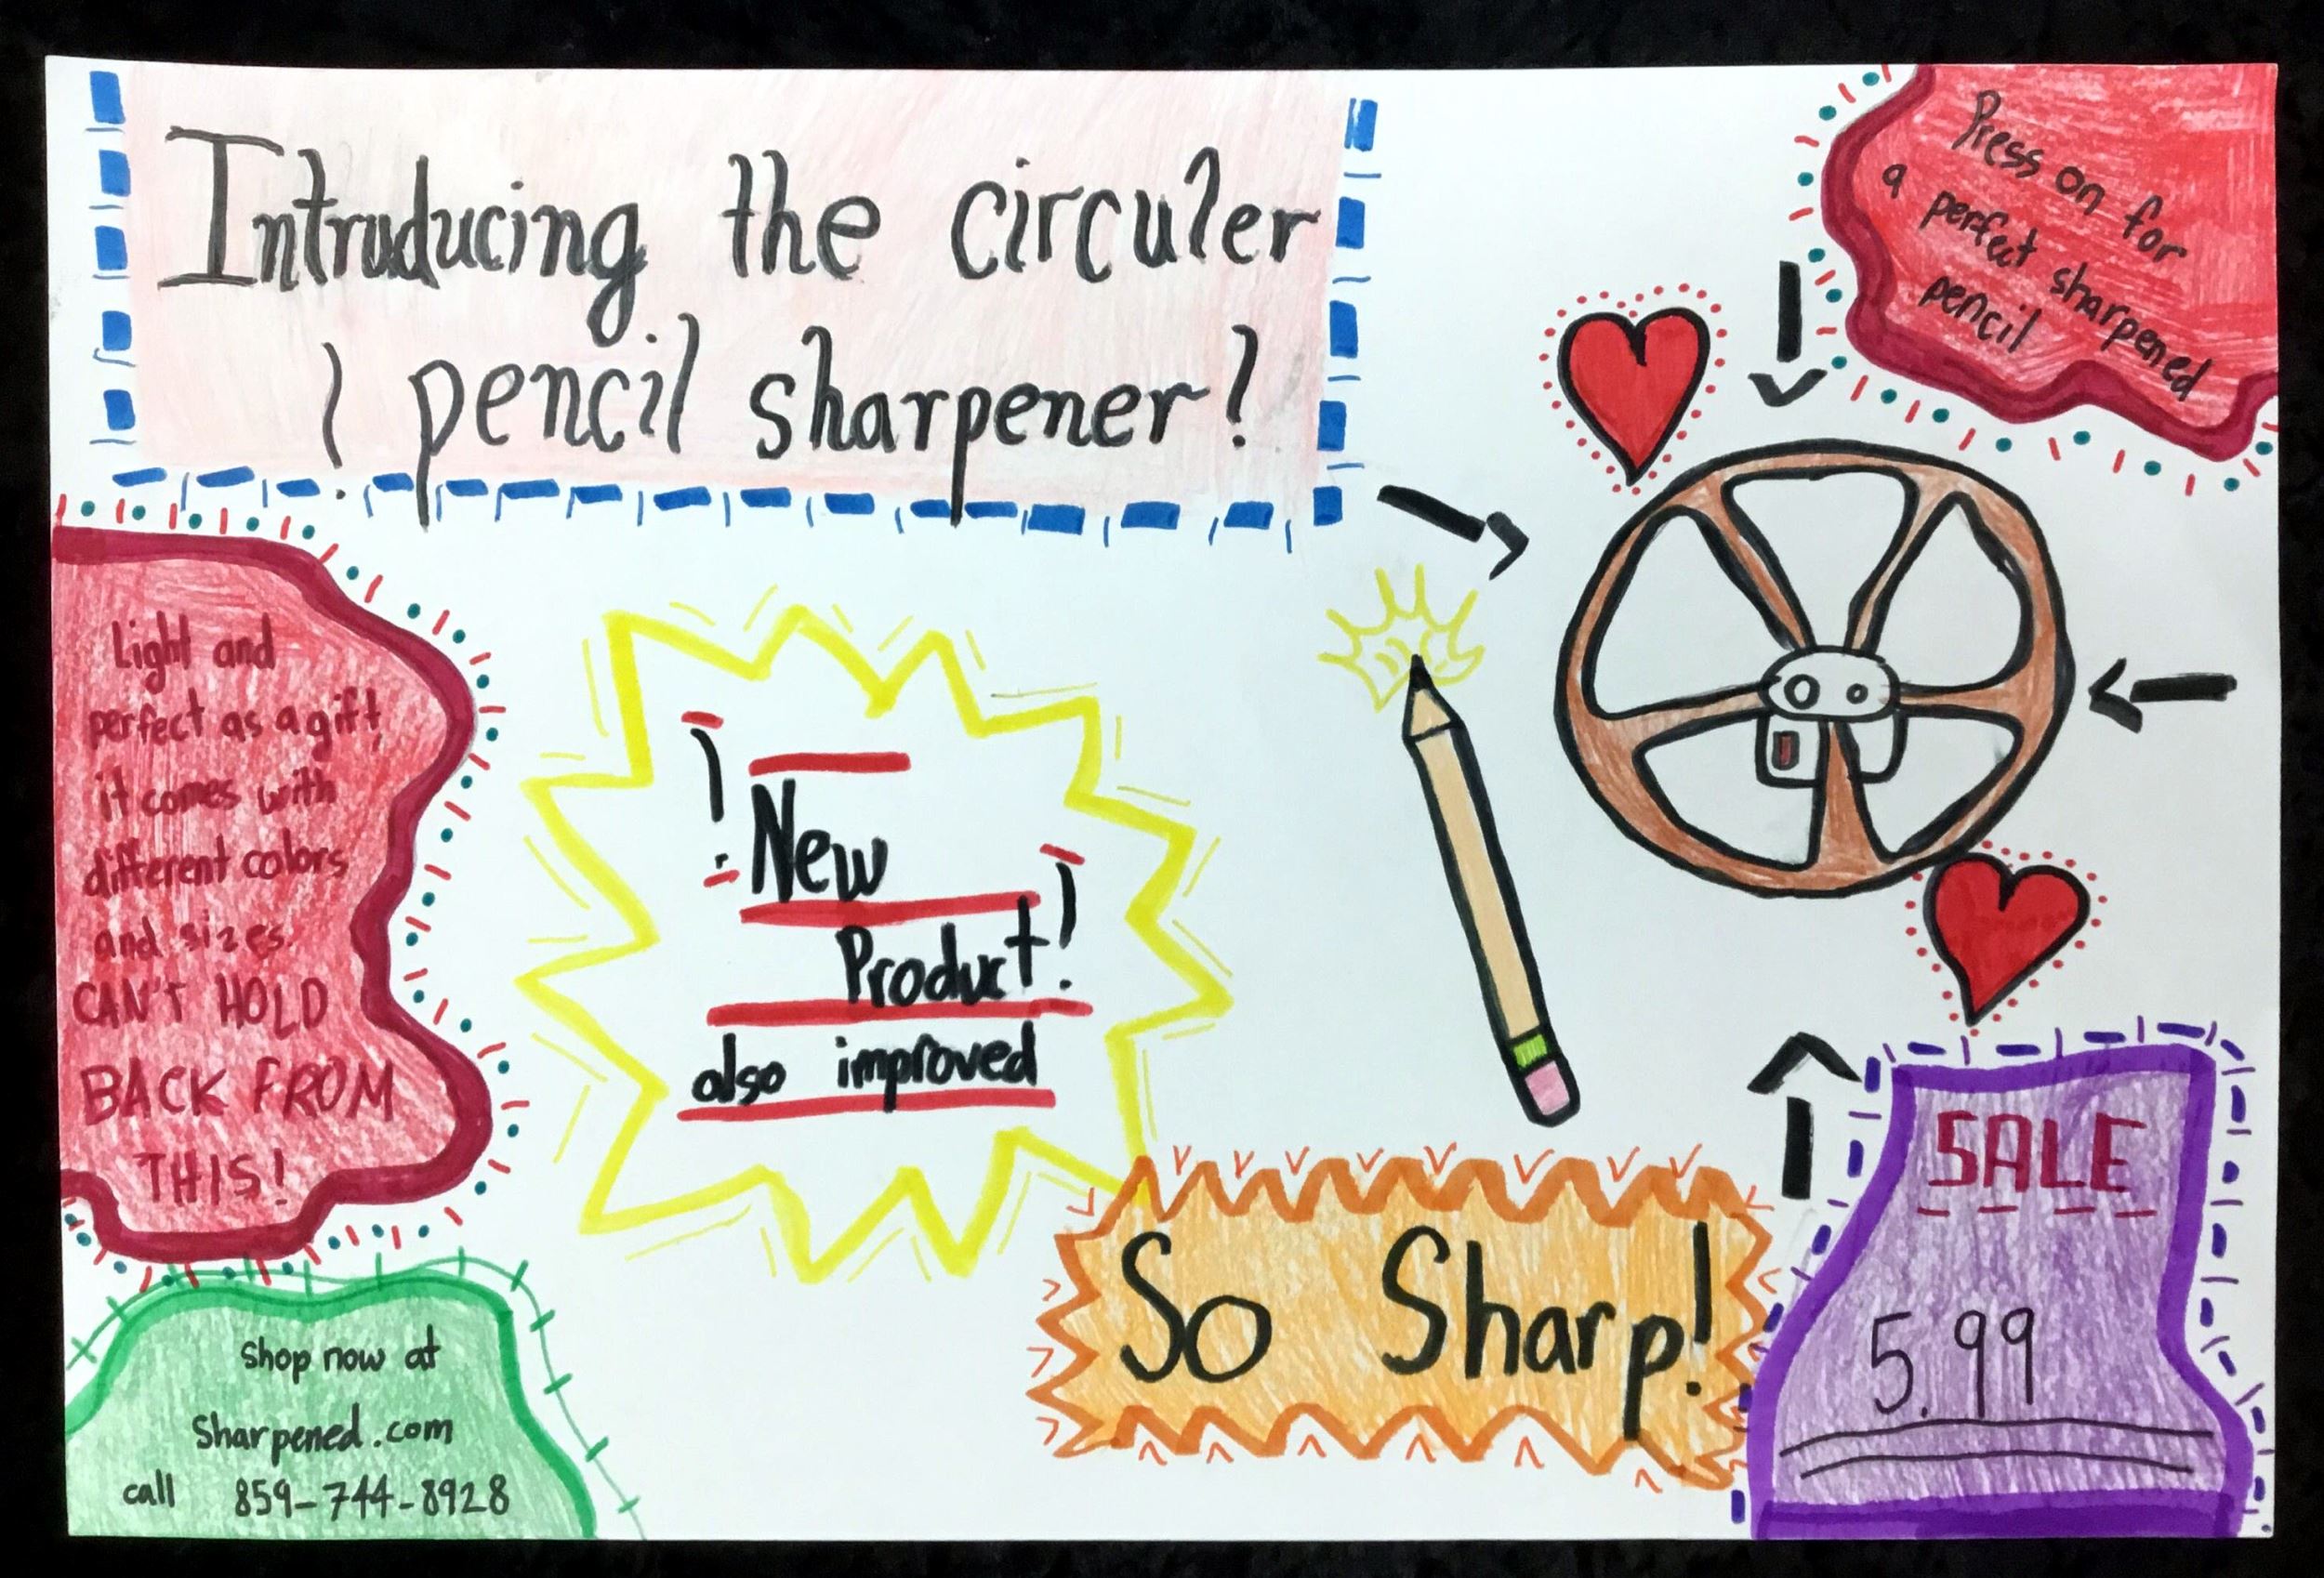 Introducing the circuler
! pencil sharpener!
Press on for
a perfect sharpened
pencil
Light and
perfect as a gift,
it comes with
different colors
and sizes.
CAN'T HOLD
BACK FROM
THIS!
! New
Product!
also improved
So Sharp!
SALE
5.99
Shop now at
Sharpened.com
call 859-744-8928